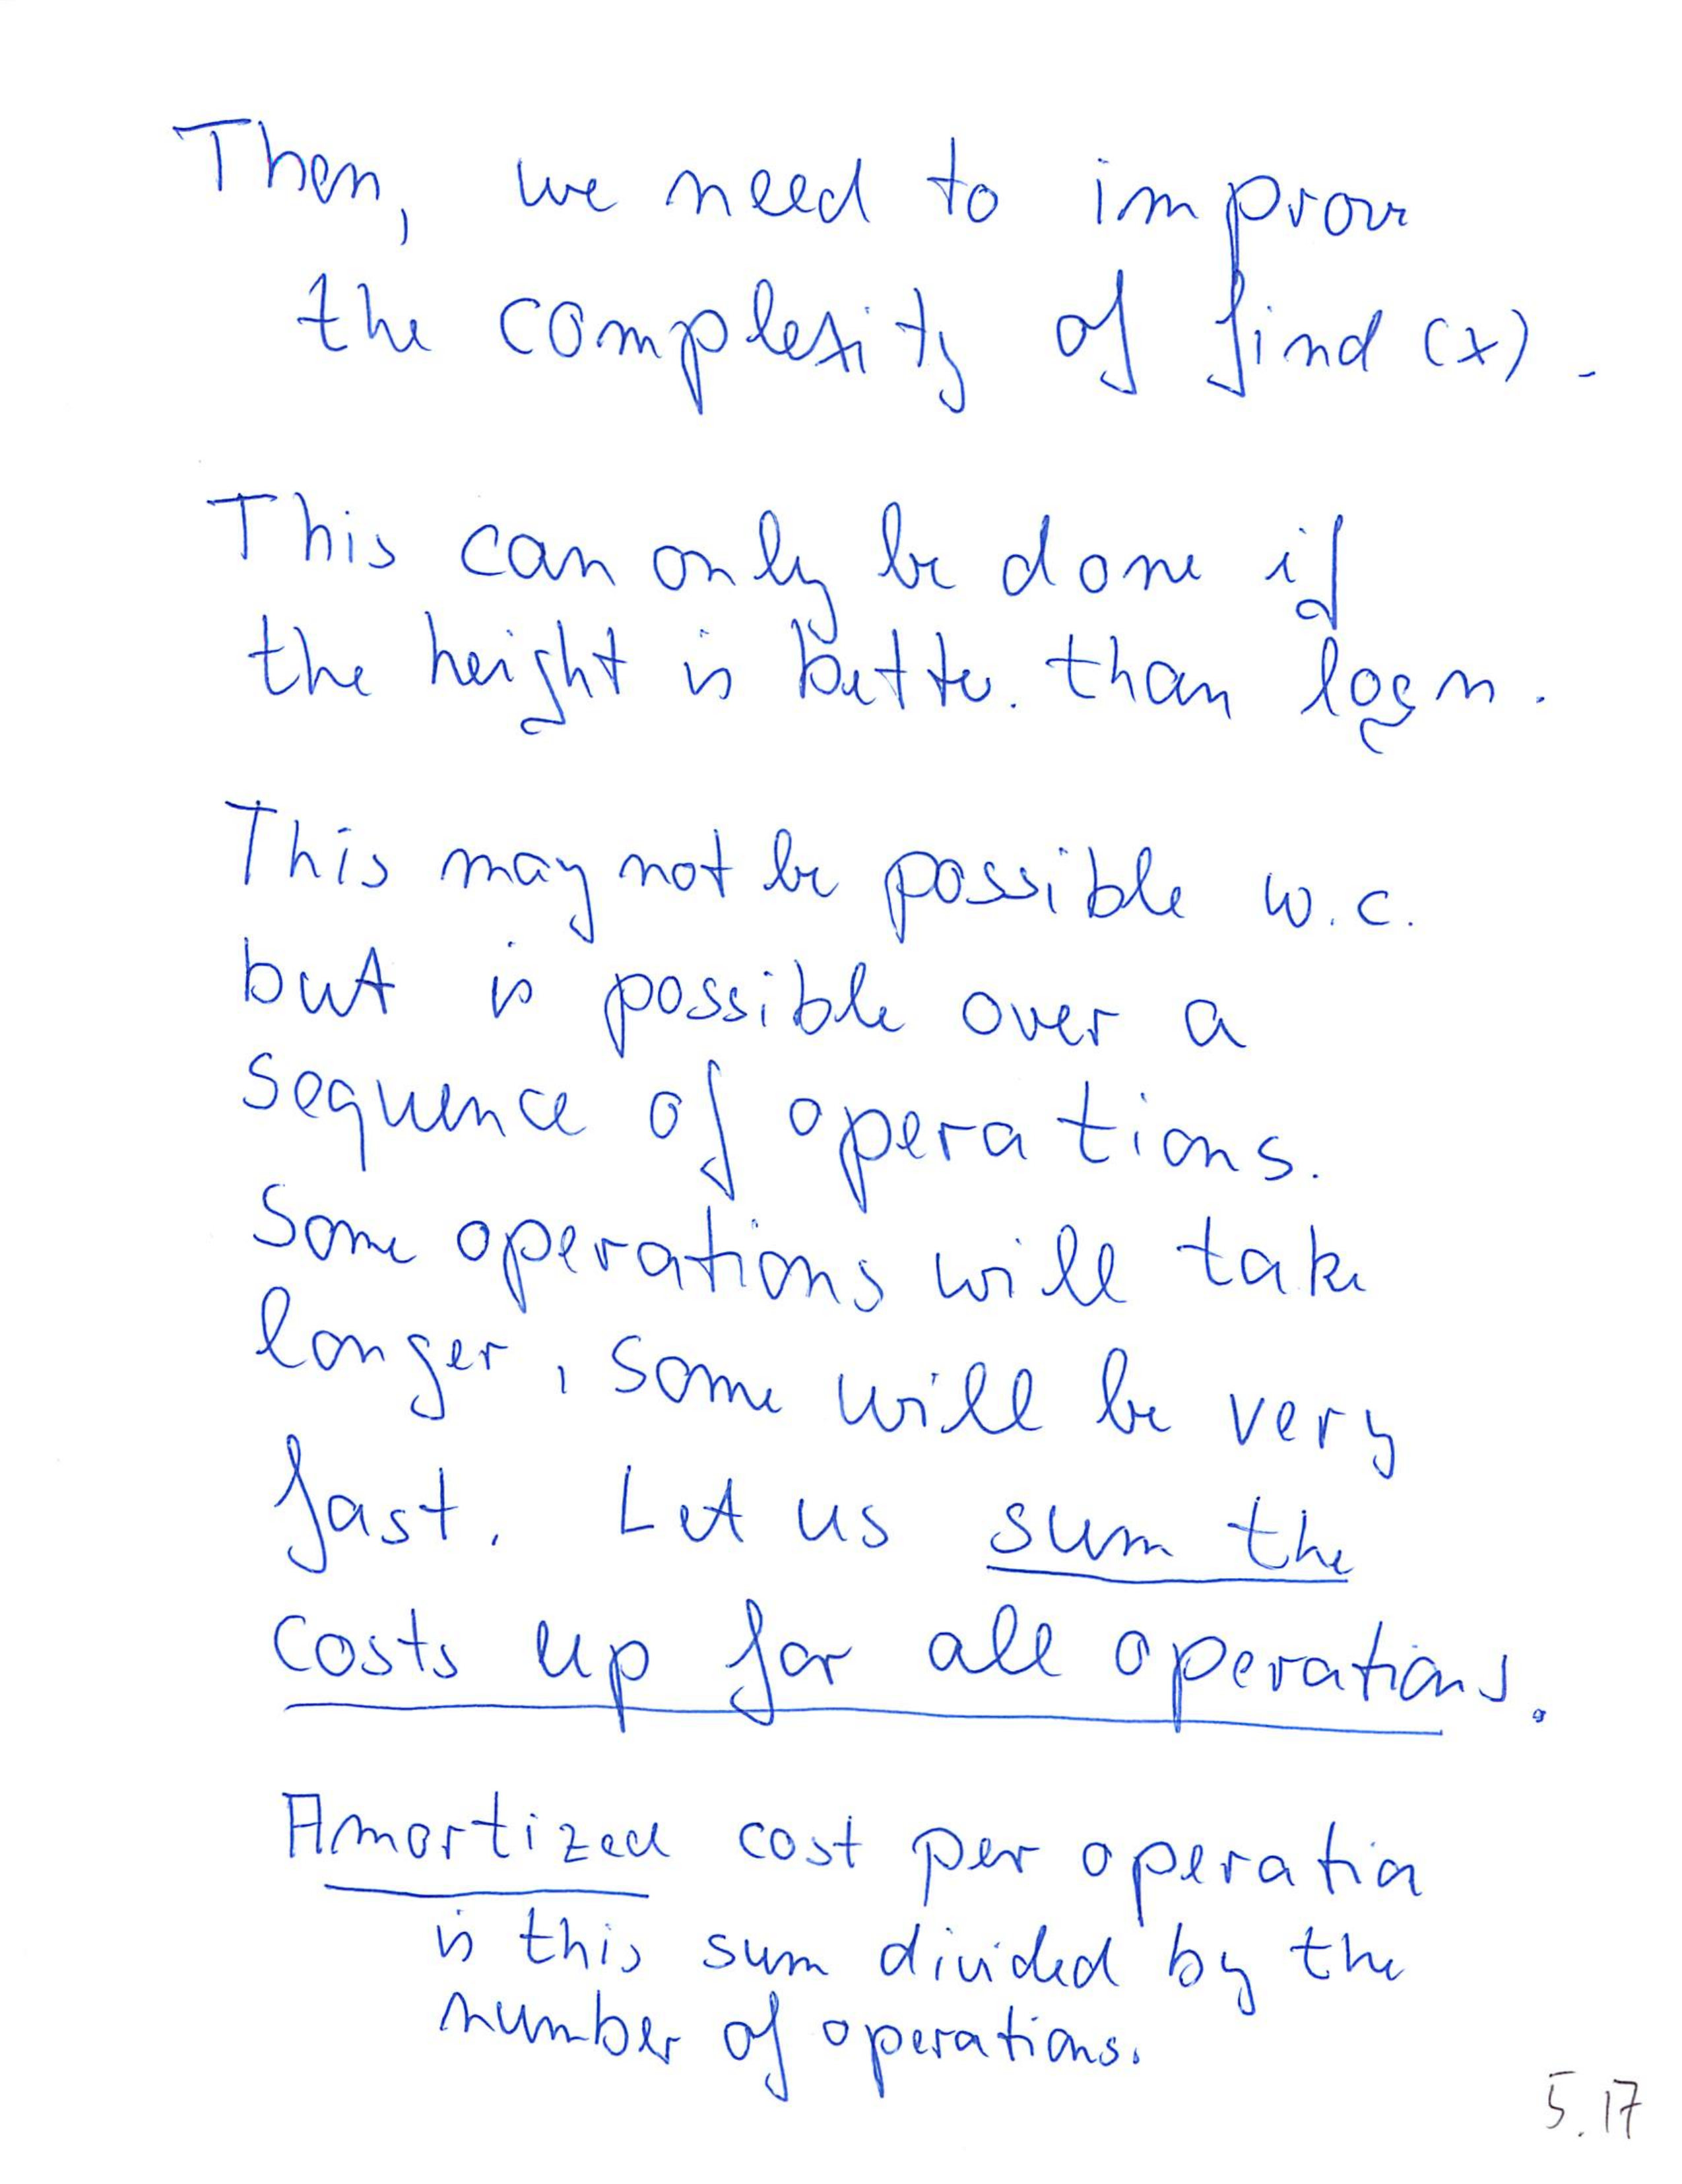 Then, we need to improve
the complexity of find (x).
This can only be done if
the height is better. than log n.
This may not be possible w.c.
but is possible over a
sequence of operations.
Some operations will take
longer, some will be very
fast. Let us sum the
costs up for all operations.
Amortized cost per operation
is this sum divided by the
number of operations.
5.17